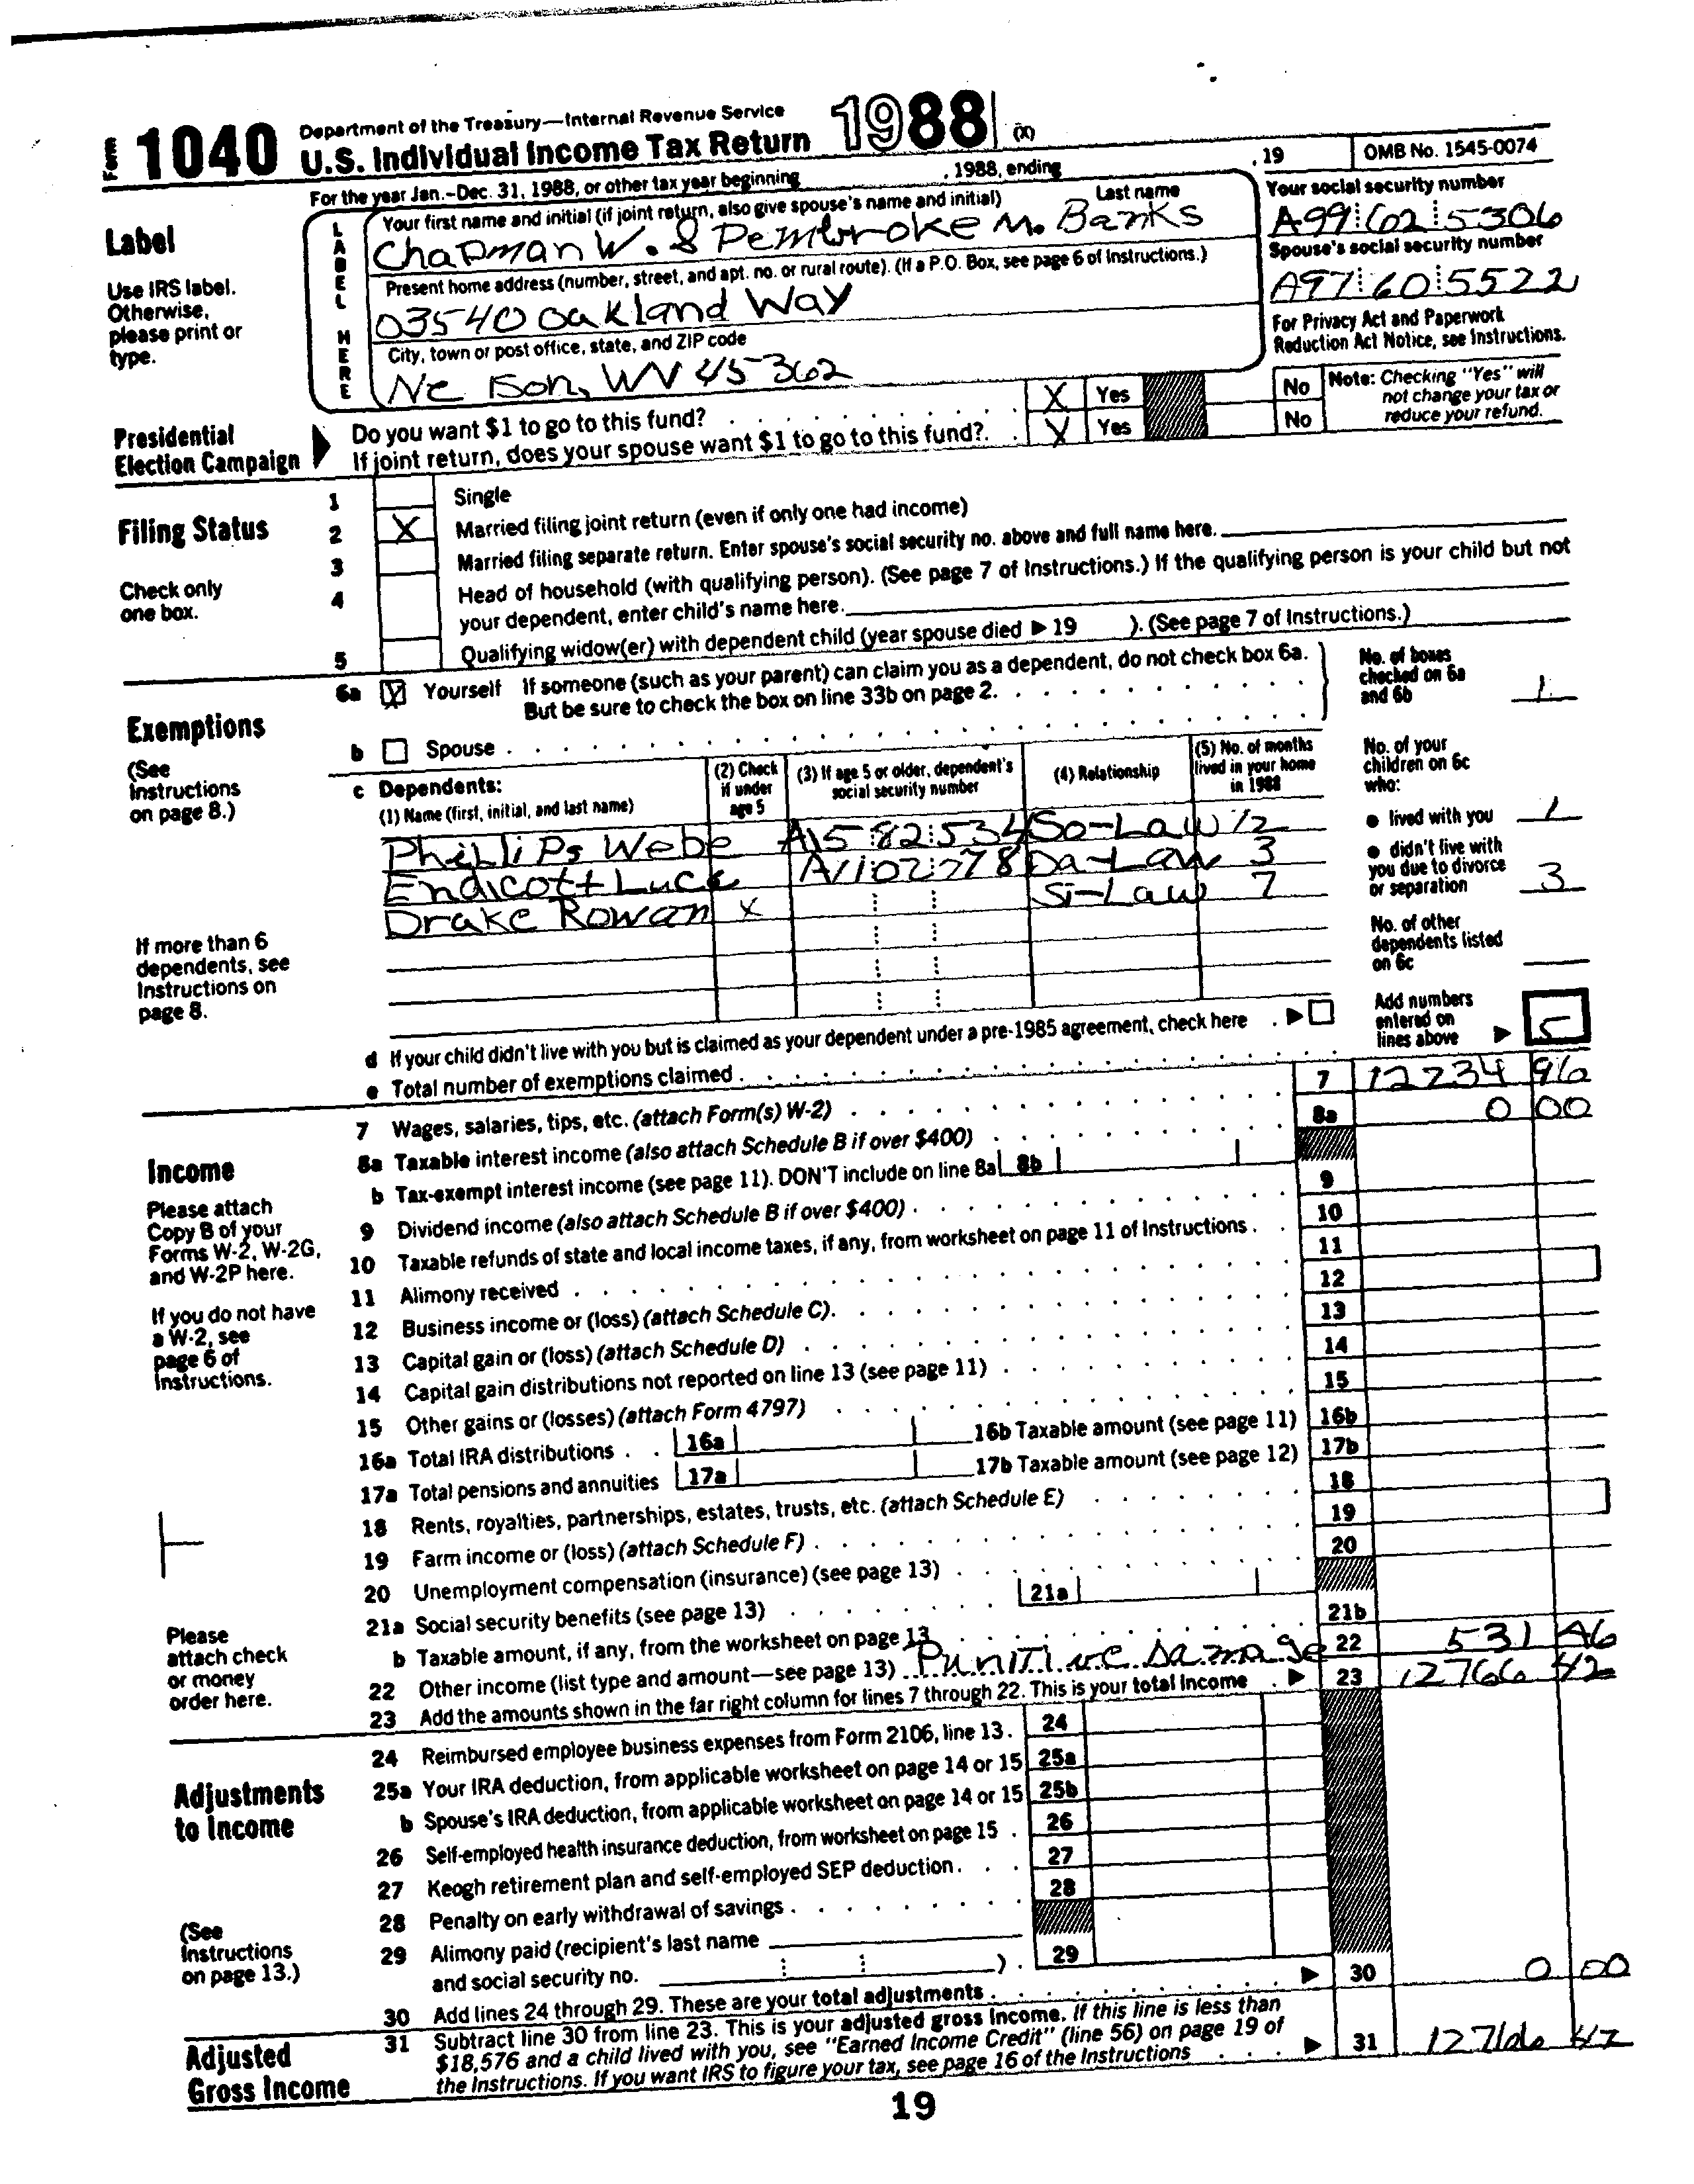 Form 1040 Department of the Treasury—Internal Revenue Service
U.S. Individual Income Tax Return 1988 (X)
For the year Jan.–Dec. 31, 1988, or other tax year beginning , 1988, ending , 19 OMB No. 1545-0074
Label
Use IRS label.
Otherwise,
please print or
type.
LABEL HERE
Your first name and initial (if joint return, also give spouse's name and initial) Last name
Chapman W. & Pembroke M. Banks
Your social security number
A99 602 5306
Present home address (number, street, and apt. no. or rural route). (If a P.O. Box, see page 6 of Instructions.)
03540 Oakland Way
Spouse's social security number
A97 60 5522
City, town or post office, state, and ZIP code
Ne lson, WV 45362
For Privacy Act and Paperwork
Reduction Act Notice, see Instructions.
Presidential
Election Campaign
Do you want $1 to go to this fund? X Yes No
If joint return, does your spouse want $1 to go to this fund? X Yes No
Note: Checking "Yes" will
not change your tax or
reduce your refund.
Filing Status
Check only
one box.
1 Single
2 X Married filing joint return (even if only one had income)
3 Married filing separate return. Enter spouse's social security no. above and full name here.
4 Head of household (with qualifying person). (See page 7 of Instructions.) If the qualifying person is your child but not
your dependent, enter child's name here.
5 Qualifying widow(er) with dependent child (year spouse died ▶ 19 ). (See page 7 of Instructions.)
Exemptions
(See
Instructions
on page 8.)
6a X Yourself If someone (such as your parent) can claim you as a dependent, do not check box 6a.
But be sure to check the box on line 33b on page 2.
b Spouse
No. of boxes
checked on 6a
and 6b 1
c Dependents:
(1) Name (first, initial, and last name)
(2) Check
if under
age 5
(3) If age 5 or older, dependent's
social security number
(4) Relationship
(5) No. of months
lived in your home
in 1988
Phillips Webe A15 82 534 So-Law 12
Endicott Luce A1102 778 Da-Law 3
Drake Rowan X Si-Law 7
No. of your
children on 6c
who:
● lived with you 1
● didn't live with
you due to divorce
or separation 3
No. of other
dependents listed
on 6c
If more than 6
dependents, see
Instructions on
page 8.
d If your child didn't live with you but is claimed as your dependent under a pre-1985 agreement, check here ▶
e Total number of exemptions claimed
Add numbers
entered on
lines above ▶ 5
Income
Please attach
Copy B of your
Forms W-2, W-2G,
and W-2P here.
If you do not have
a W-2, see
page 6 of
Instructions.
Please
attach check
or money
order here.
7 Wages, salaries, tips, etc. (attach Form(s) W-2) 7 12234 96
8a Taxable interest income (also attach Schedule B if over $400) 8a 0 00
b Tax-exempt interest income (see page 11). DON'T include on line 8a 8b
9 Dividend income (also attach Schedule B if over $400) 9
10 Taxable refunds of state and local income taxes, if any, from worksheet on page 11 of Instructions 10
11 Alimony received 11
12 Business income or (loss) (attach Schedule C) 12
13 Capital gain or (loss) (attach Schedule D) 13
14 Capital gain distributions not reported on line 13 (see page 11) 14
15 Other gains or (losses) (attach Form 4797) 15
16a Total IRA distributions 16a 16b Taxable amount (see page 11) 16b
17a Total pensions and annuities 17a 17b Taxable amount (see page 12) 17b
18 Rents, royalties, partnerships, estates, trusts, etc. (attach Schedule E) 18
19 Farm income or (loss) (attach Schedule F) 19
20 Unemployment compensation (insurance) (see page 13) 20
21a Social security benefits (see page 13) 21a
b Taxable amount, if any, from the worksheet on page 13 21b
22 Other income (list type and amount—see page 13) Punitive Damage 22 531 46
23 Add the amounts shown in the far right column for lines 7 through 22. This is your total income ▶ 23 12766 42
Adjustments
to Income
(See
Instructions
on page 13.)
24 Reimbursed employee business expenses from Form 2106, line 13. 24
25a Your IRA deduction, from applicable worksheet on page 14 or 15 25a
b Spouse's IRA deduction, from applicable worksheet on page 14 or 15 25b
26 Self-employed health insurance deduction, from worksheet on page 15 26
27 Keogh retirement plan and self-employed SEP deduction 27
28 Penalty on early withdrawal of savings 28
29 Alimony paid (recipient's last name
and social security no. ) 29
30 Add lines 24 through 29. These are your total adjustments ▶ 30 0 00
Adjusted
Gross Income
31 Subtract line 30 from line 23. This is your adjusted gross income. If this line is less than
$18,576 and a child lived with you, see "Earned Income Credit" (line 56) on page 19 of
the Instructions. If you want IRS to figure your tax, see page 16 of the Instructions ▶ 31 12766 42
19